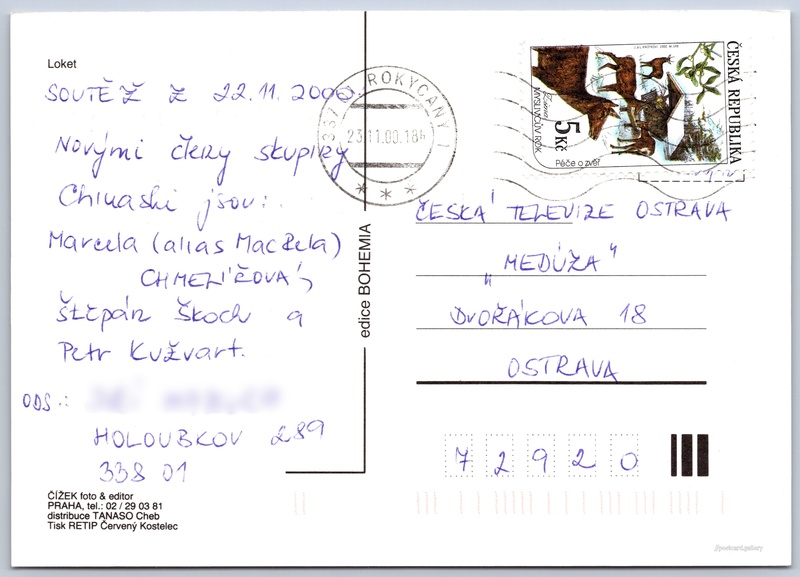 Loket
SOUTĚŽ Z 22.11.2000
Novými členy skupiny
Chinaski jsou:
Marcela (alias MacBela)
CHMELÍČOVÁ,
Štěpán Škoch a
Petr Kužvart.
ODS.:
HOLOUBKOV 289
338 01
ČÍŽEK foto & editor
PRAHA, tel.: 02 / 29 03 81
distribuce TANASO Cheb
Tisk RETIP Červený Kostelec
edice BOHEMIA
337 ROKYCANY 1
23.11.00.18
ČESKÁ REPUBLIKA
MYSLIVCŮV ROK
5 Kč
Péče o zvěř
ČESKÁ TELEVIZE OSTRAVA
„MEDÚZA"
DVOŘÁKOVA 18
OSTRAVA
72920